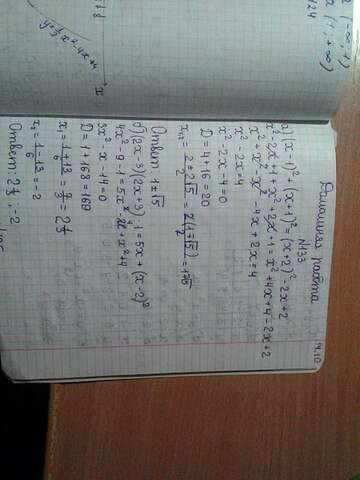 y=⅓x²-4x+4
x
Домашняя работа
14.10
N133
а) (x-1)²+(x+1)²=(x+2)²-2x+2
x²-2x+1+x²+2x+1=x²+4x+4-2x+2
x²+x²-x²-4x+2x=4
x²-2x=4
x²-2x-4=0
D=4+16=20
x₁,₂=(2±2√5)/2=2(1±√5)/2=1±√5
Ответ: 1±√5
б) (2x-3)(2x+3)-1=5x+(x-2)²
4x²-9-1=5x+x²-4x+4
3x²-x-14=0
D=1+168=169
x₁=(1+13)/6=7/3=2⅓
x₂=(1-13)/6=-2
Ответ: 2⅓, -2